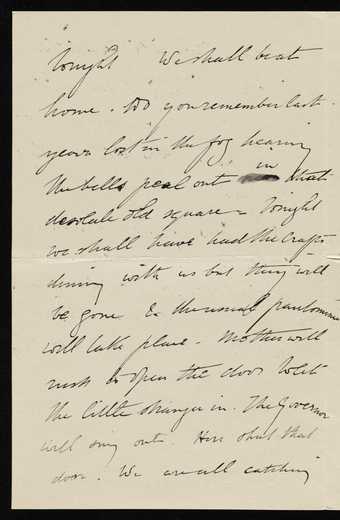 tonight We shall be at
home. Do you remember last
year lost in the fog hearing
the bells peal out in that
desolate old square – Tonight
we shall have had the Crafts
dining with us but they will
be gone & the usual pantomime
will take place – Mother will
rush to open the door to let
the little stranger in. The Governor
will sing out. Here shut that
door. We are all catching